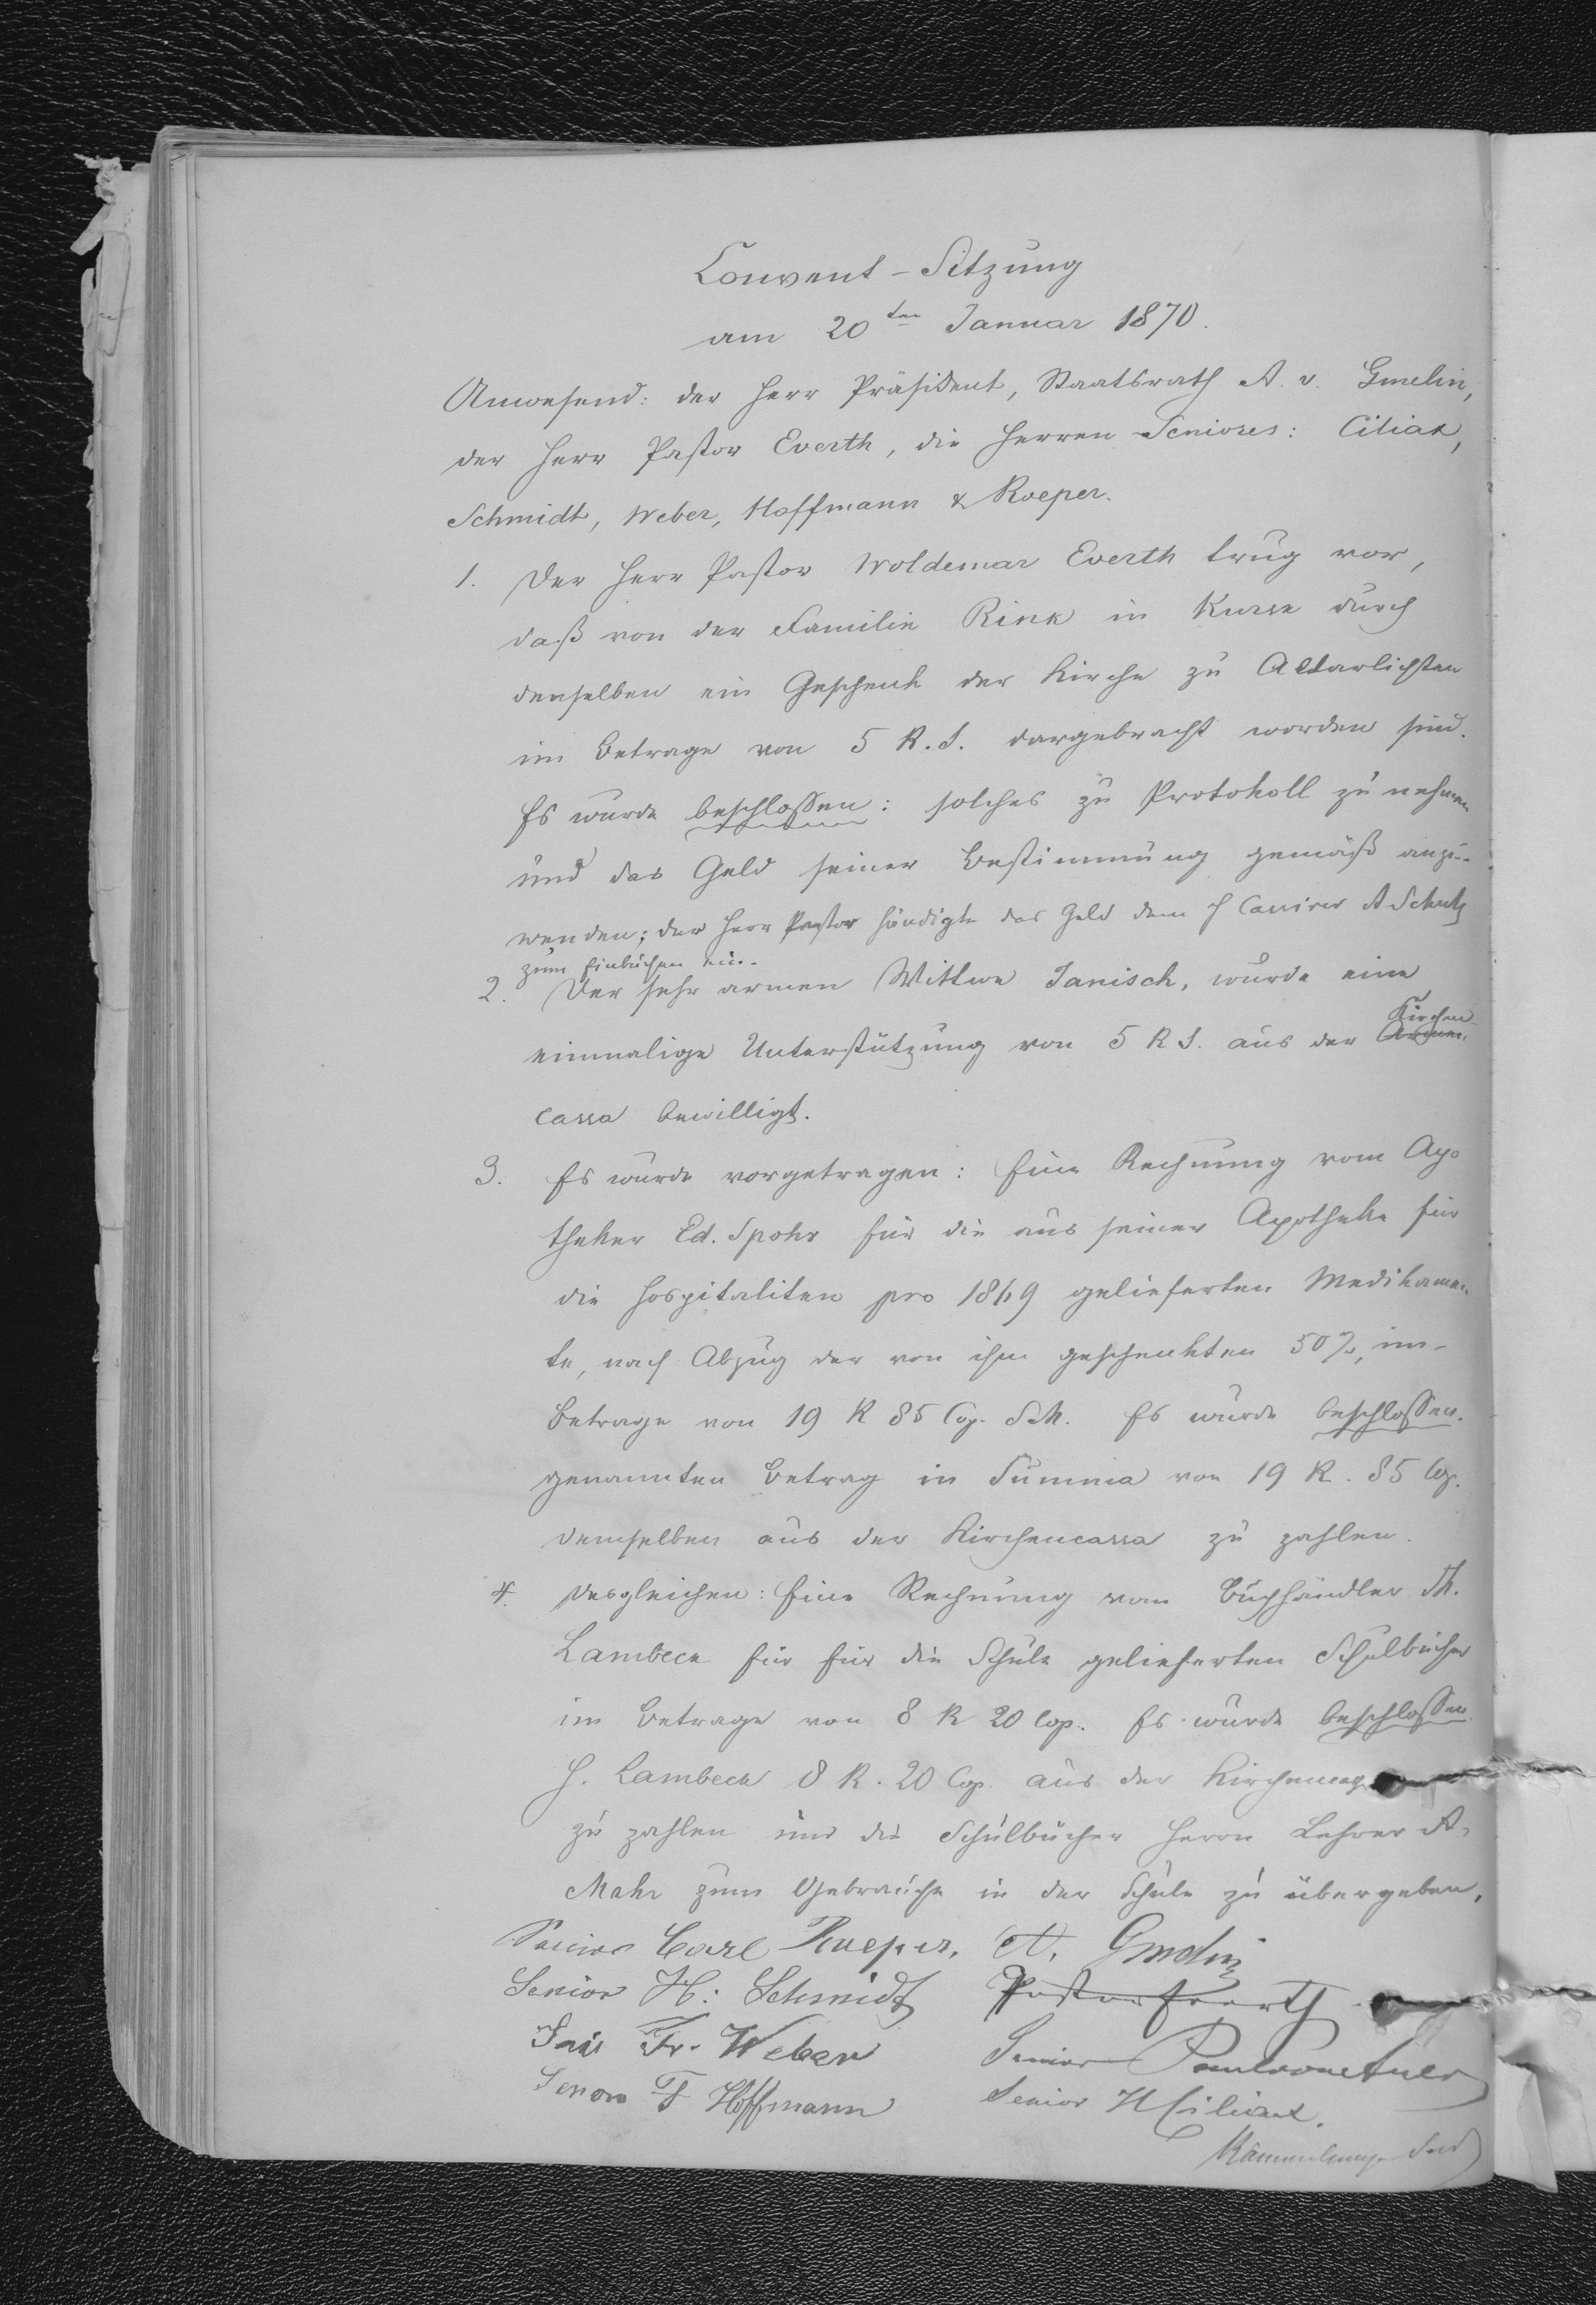 Convent-Sitzung
am 20ten Januar 1870.
Anwesend: der Herr Präsident, Staatsrath A. v. Gmelin,
der Herr Pastor Everth, die Herren Seniores: Ciliax,
Schmidt, Weber, Hoffmann & Roeper.
1. Der Herr Pastor Woldemar Everth trug vor,
daß von der Familie Rink in durch
denselben ein Geschenk der Kirche zu Altarlichten
im Betrage von 5 R. S. dargebracht worden sind.
Es wurde beschlossen: solches zu Protokoll zu nehmen
und das Geld seiner Bestimmung gemäß anzu-
wenden; der Herr Pastor händigte das Geld dem H Cassirer A Schultz
zum Einbuchen ein.-
2. Der sehr armen Wittwe Janisch, wurde eine
Kirchen-
einmalige Unterstützung von 5 R S. aus der Armen-
cassa bewilligt.
3. Es wurde vorgetragen: Eine Rechnung vom Apo
theker Ed. Spohr für die aus seiner Apotheke für
die Hospitaliten pro 1869 gelieferten Medikamen-
te, nach Abzug der von ihm geschenkten 50%, im-
Betrage von 19 R 85 Cop. S. M. Es wurde beschlossen.
genannten Betrag in Summa von 19 R. 85 Cop.
demselben aus der Kirchencassa zu zahlen.
4. Desgleichen: Eine Rechnung vom Buchhändler Th.
Lambeck für für die Schule gelieferten Schulbücher
im Betrage von 8 R 20 Cop. Es wurde beschlossen
H. Lambeck 8 R. 20 Cop. aus der
zu zahlen und die Schulbücher Herrn Lehrer A.
Mahr zum Gebrauche in der Schule zu übergeben.
Senior Carl Roeper. A. Gmelin
Senior H: Schmidt Pastor Everth
Fr. Weber Senior
Senior F Hoffmann Senior H Ciliax.